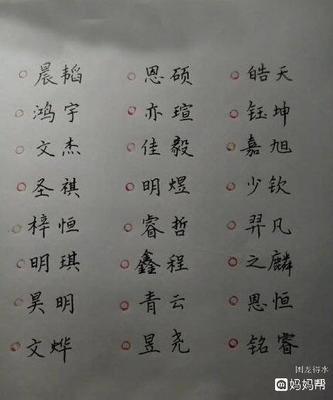 晨韬 恩硕 皓天
鸿宇 亦瑄 钰坤
文杰 佳毅 嘉旭
圣祺 明煜 少钦
梓恒 睿哲 羿凡
明琪 鑫程 之麟
昊明 青云 恩恒
文烨 昱尧 铭睿
困龙得水
妈妈帮